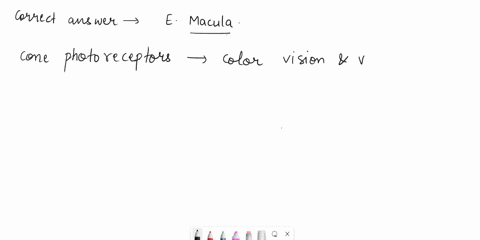 correct answer → E. Macula.
cone photoreceptors → color vision & v